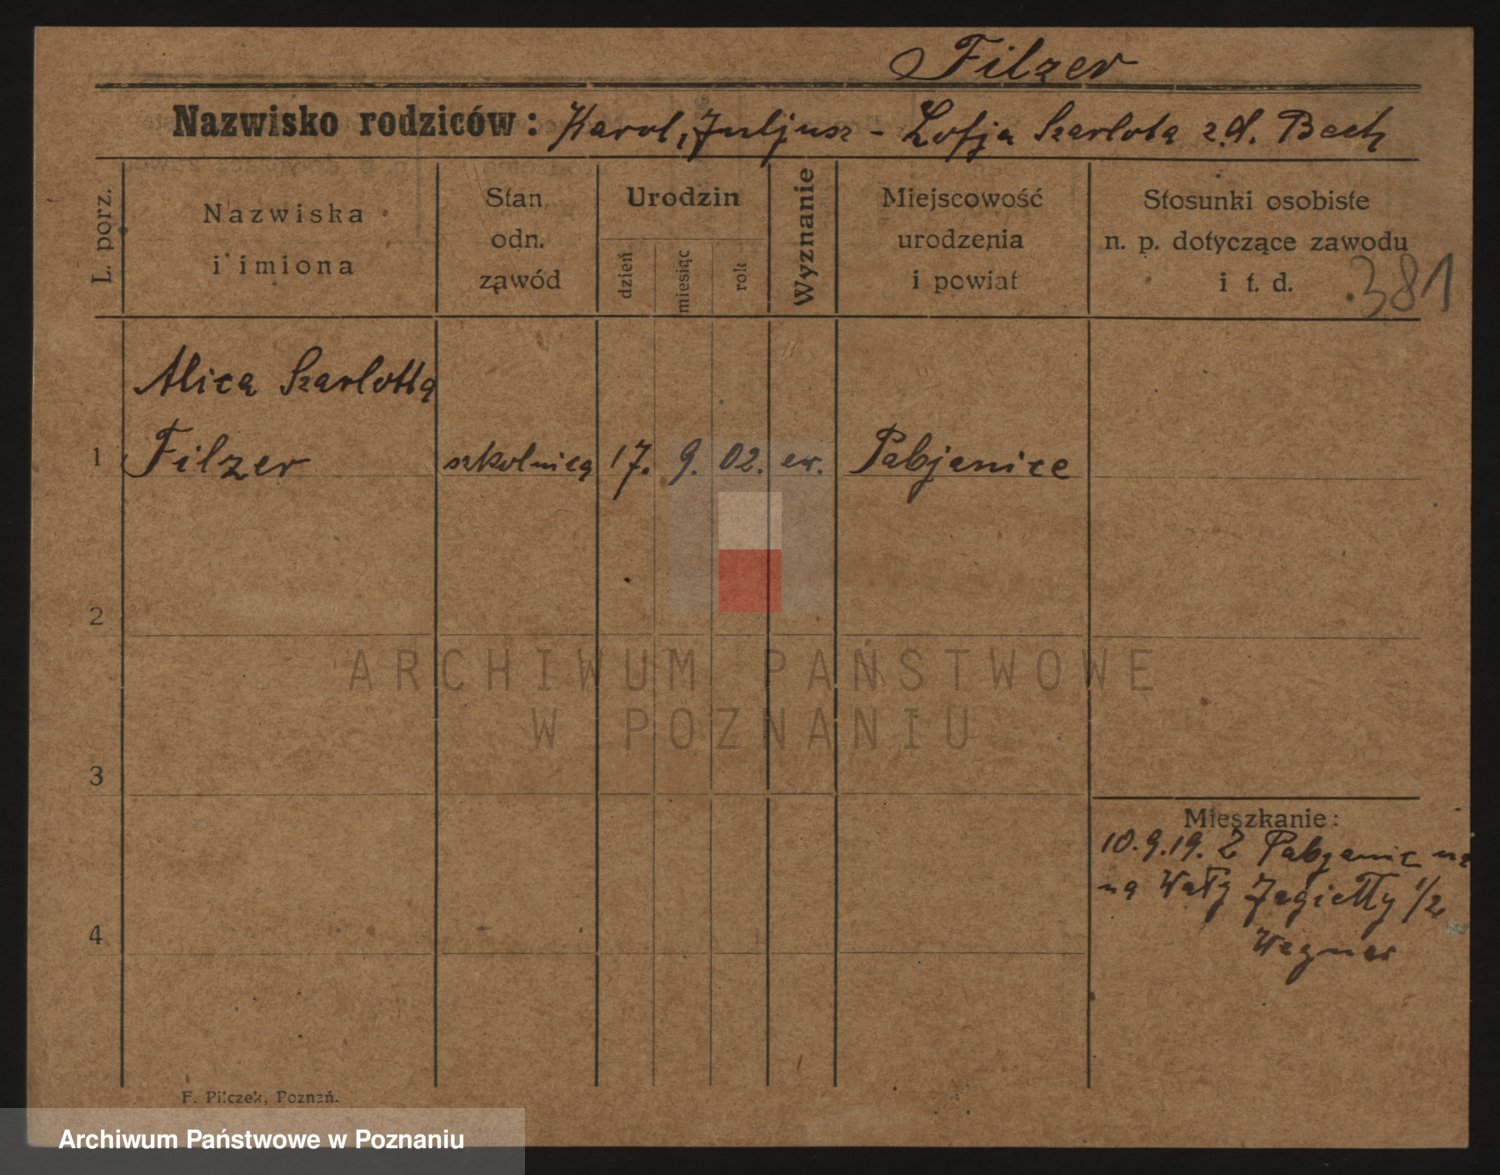 Filzer
Nazwisko rodziców: Karol, Juljusz - Zofja Szarlota z.d. Bech
L. porz.
Nazwiska
i imiona
Stan
odn.
zawód
Urodzin
dzień
miesiąc
rok
Wyznanie
Miejscowość
urodzenia
i powiat
Stosunki osobiste
n. p. dotyczące zawodu
i t. d.
381
Alica Szarlotta
1 Filzer szkolnica 17. 9. 02. ew. Pabjanice
2
ARCHIWUM PAŃSTWOWE
W POZNANIU
3
Mieszkanie:
10.9.19. Z Pabjanic
na Wały Jagiełły 1/2
Wegner
4
F. Pilczek, Poznań.
Archiwum Państwowe w Poznaniu